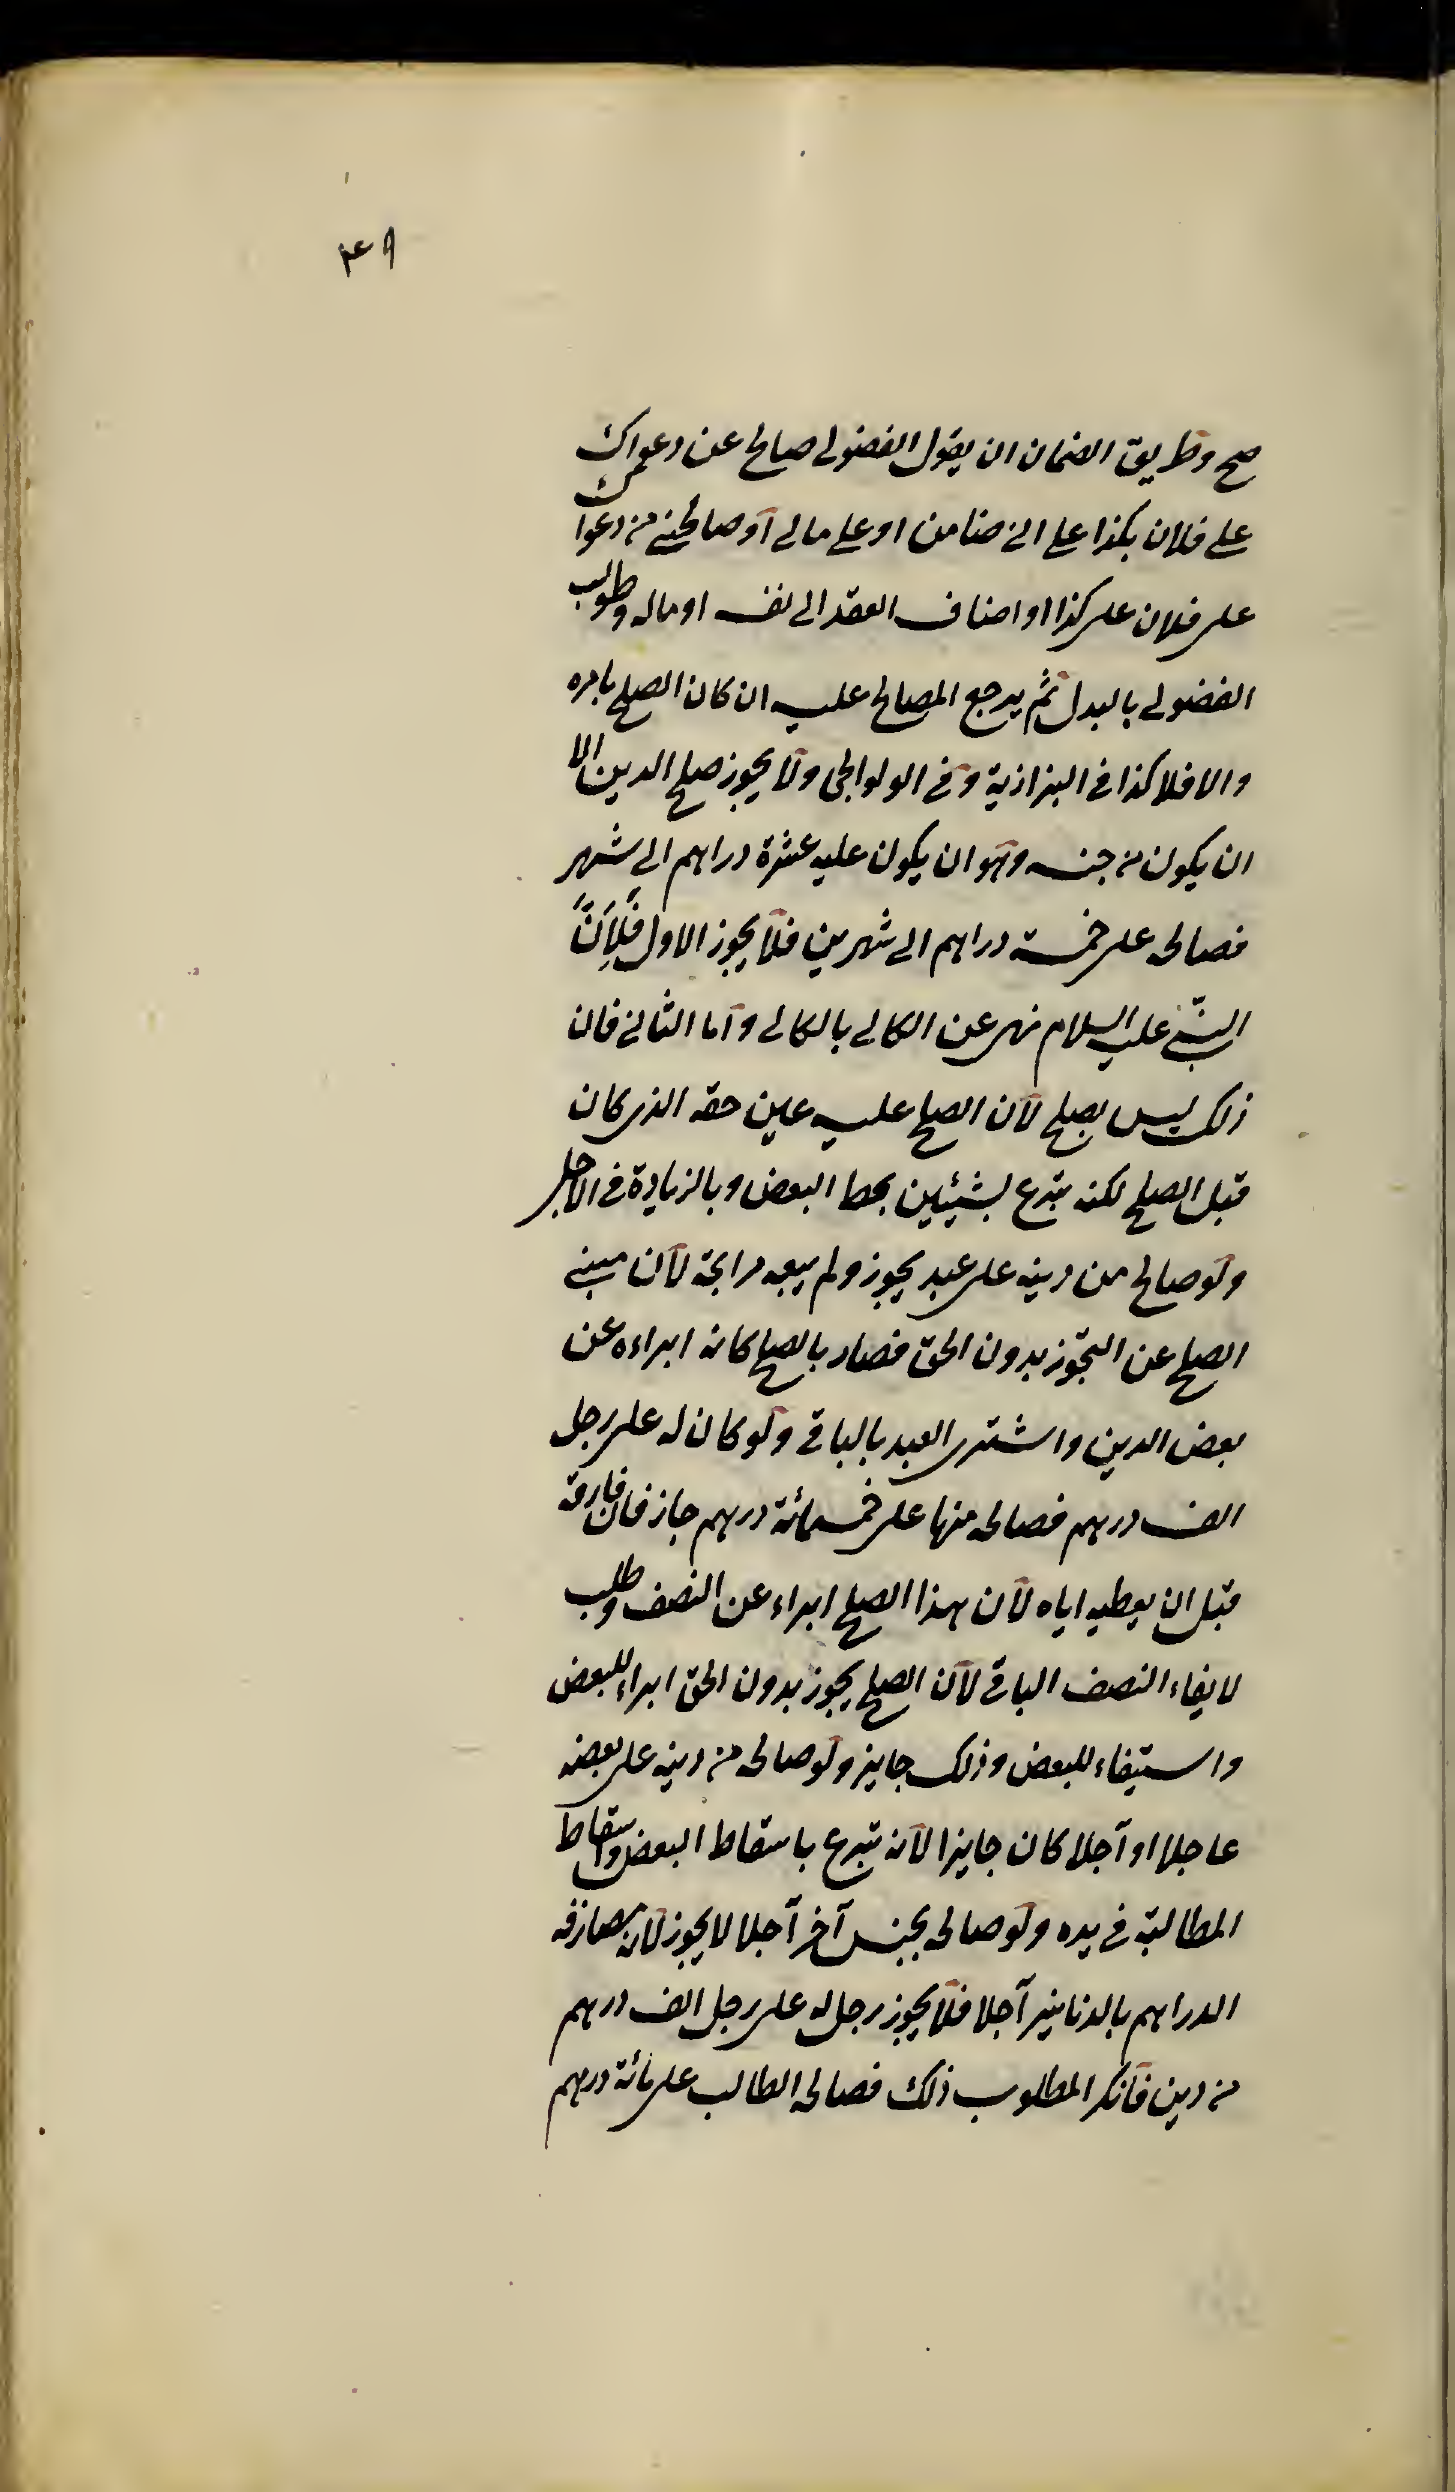 ٤٩
صح وطريق الضمان ان يقول الفضولى صالح عن دعواك
على فلان بكذا على انى ضامن او على مالى او صالحنى من دعواك
على فلان على كذا او اضاف العقد الى نفسه او ماله وطولب
الفضولى بالبدل ثم يرجع المصالح عليه ان كان الصلح بامره
والا فلا كذا فى البزازية وفى الولوالجى ولا يجوز صلح الدين الا
ان يكون من جنسه وهو ان يكون عليه عشرة دراهم الى شهر
فصالحه على خمسة دراهم الى شهرين فلا يجوز الاول فلانّ
النبّى عليه السلام نهى عن الكالى بالكالى واما الثانى فان
ذلك ليس بصلح لان الصلح عليه عين حقه الذى كان
قبل الصلح لكنه تبرع بشيئين بحط البعض وبالزيادة فى الاجل
ولو صالح من دينه على عبد يجوز ولم يبعه مرابحة لان مبنى
الصلح عن التجوّز بدون الحق فصار بالصلح كانه ابراءه عن
بعض الدين واشترى العبد بالباقى ولو كان له على رجل
الف درهم فصالحه منها على خمسمائة درهم جاز فان فارقه
قبل ان يعطيه اياه لان هذا الصلح ابراء عن النصف وطلب
لايفاء النصف الباقى لان الصلح يجوز بدون الحق ابراء للبعض
واستيفاء للبعض وذلك جايز ولو صالحه من دينه على بعضه
عاجلا او آجلا كان جايزا لانه تبرع باسقاط البعض واسقاط
المطالبة فى يده ولو صالحه بجنس آخر آجلا لا يجوز لانه مصارفه
الدراهم بالدنانير آجلا فلا يجوز رجل له على رجل الف درهم
من دين فانكر المطلوب ذلك فصالحه الطالب على مائة درهم